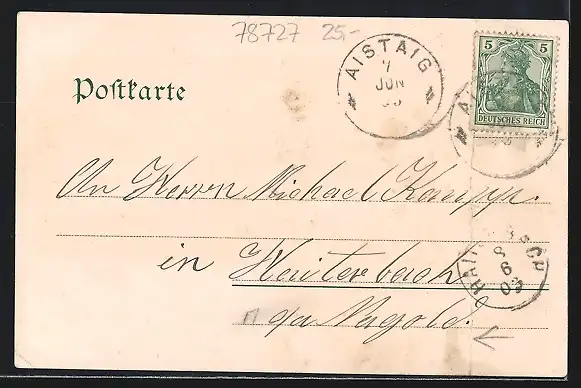 78727 25.-
AISTAIG
7
JUN
5 5
DEUTSCHES REICH
Postkarte
An Herrn Michael Kampp.
in Haiterbach
HAITERBACH
8
6
05
o/a Nagold.